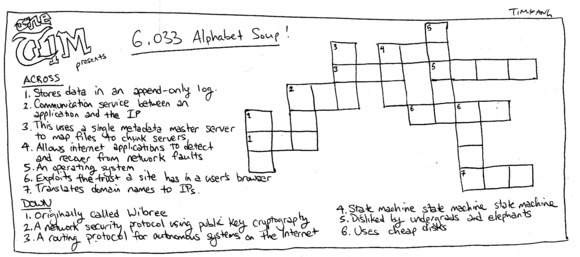 TIM YANG
THE
AIM
presents
6.033 Alphabet Soup!
ACROSS
1. Stores data in an append-only log.
2. Communication service between an
application and the IP
3. This uses a single metadata master server
to map files to chunk servers.
4. Allows internet applications to detect
and recover from network faults
5. An operating system
6. Exploits the trust a site has in a user's browser
7. Translates domain names to IPs.
DOWN
1. Originally called Wibree
2. A network security protocol using public key cryptography
3. A routing protocol for autonomous systems on the Internet
4. State machine state machine state machine
5. Disliked by undergrads and elephants
6. Uses cheap disks
5
3
4
3
5
2
6
6
1
1
7